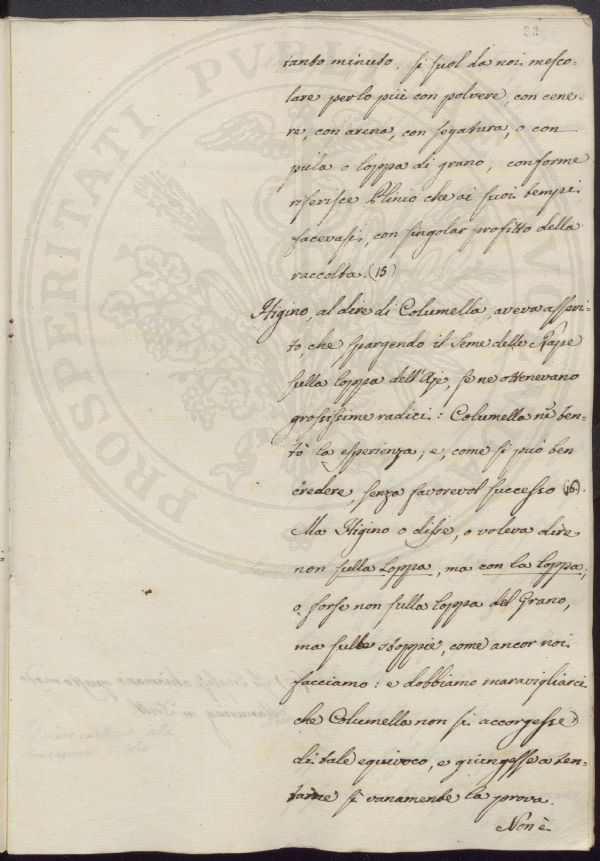 tanto minuto, si suol da noi mesco-
lare per lo più con polvere, con cene-
re, con arena, con segatura, o con
pula o loppa di grano, conforme
riferisce Plinio che ai suoi tempi
facevasi, con singolar profitto della
raccolta. (15)
Higino, al dire di Columella, aveva asseri-
to, che spargendo il Seme delle Rape
sulla loppa dell'Aje, se ne ottenevano
grossissime radici: Columella ne ten-
tò la esperienza; e, come si può ben
credere, senza favorevol successo (16).
Ma Higino o disse, o voleva dire
non sulla Loppa, ma con la loppa;
o, forse non sulla loppa del Grano,
ma sulle stoppie, come ancor noi
facciamo: e dobbiamo maravigliarci
che Columella non si accorgesse
di tale equivoco, e giungesse a ten-
tarne sì vanamente la prova.
Non è
PROSPERITATI PVBLI